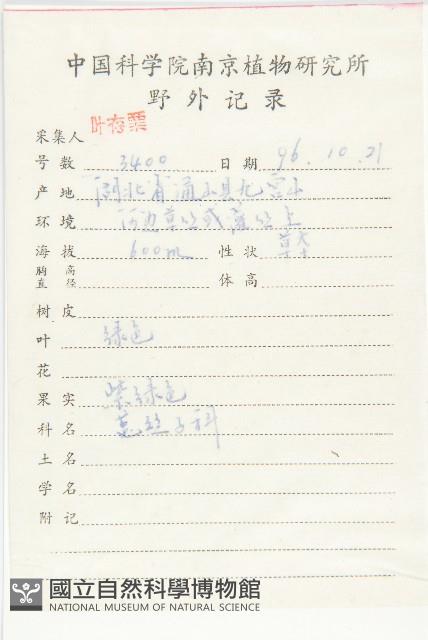 中国科学院南京植物研究所
野外记录
采集人 叶存粟
号数 3400 日期 96.10.21
产地 湖北省通山县九宫山
环境 河边草丛或灌丛上
海拔 600m 性状 草本
胸高直径 体高
树皮
叶 绿色
花
果实 紫绿色
科名 菟丝子科
土名
学名
附记
國立自然科學博物館
NATIONAL MUSEUM OF NATURAL SCIENCE